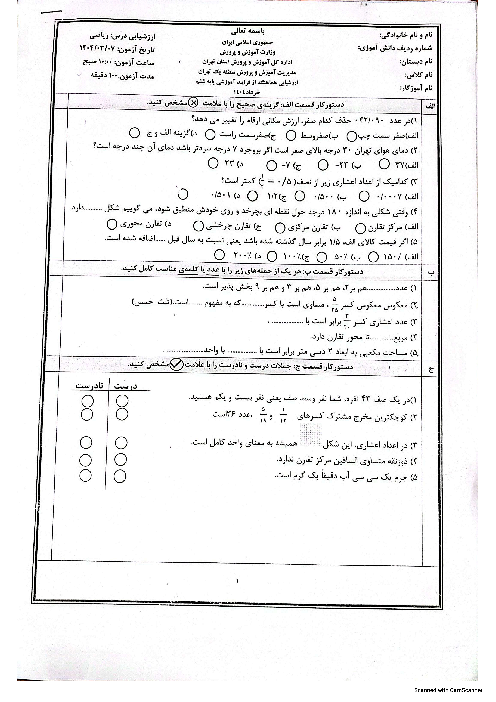 باسمه تعالی
جمهوری اسلامی ایران
وزارت آموزش و پرورش
اداره کل آموزش و پرورش استان تهران
مدیریت آموزش و پرورش منطقه یک تهران
ارزشیابی هماهنگ از فرآیند آموزشی پایه ششم
خرداد ۱۴۰۴
نام و نام خانوادگی:
شماره ردیف دانش آموزی:
نام دبستان:
نام کلاس:
نام آموزگار:
ارزشیابی درس: ریاضی
تاریخ آزمون: ۱۴۰۴/۰۳/۰۷
ساعت آزمون: ۱۰:۰۰ صبح
مدت آزمون: ۱۰۰ دقیقه
الف
دستورکار قسمت الف: گزینه‌ی صحیح را با علامت ⊗ مشخص کنید.
۱) در عدد ۰۴۲/۰۹۰ حذف کدام صفر، ارزش مکانی ارقام را تغییر می دهد؟
الف) صفر سمت چپ ب) صفر وسط ج) صفر سمت راست د) گزینه الف و ج
۲) دمای هوای تهران ۳۰ درجه بالای صفر است اگر بروجرد ۷ درجه سردتر باشد دمای آن چند درجه است؟
الف) ۳۷ ب) ۲۳- ج) ۷- د) ۲۳
۳) کدامیک از اعداد اعشاری زیر از نصف (۰/۵ = ۱/۲) کمتر است؟
الف) ۰/۰۰۰۷ ب) ۰/۵۰۰ ج) ۱/۲ د) ۰/۵۰۹
۴) وقتی شکلی به اندازه ۱۸۰ درجه حول نقطه ای بچرخد و روی خودش منطبق شود، می گوییم شکل ........ دارد
الف) مرکز تقارن ب) تقارن مرکزی ج) تقارن چرخشی د) تقارن محوری
۵) اگر قیمت کالای الف، ۱/۵ برابر سال گذشته شده باشد یعنی نسبت به سال قبل ..... اضافه شده است.
الف) ۱۵۰٪ ب) ۵۰٪ ج) ۱۰۰٪ د) ۲۰۰٪
ب
دستورکار قسمت ب: هر یک از جمله‌های زیر را با عدد یا کلمه‌ی مناسب کامل کنید.
۱) عدد ............ هم بر ۲، هم بر ۵، هم بر ۳ و هم بر ۹ بخش پذیر است.
۲) معکوس معکوس کسر ۵/۲۵ مساوی است با کسر ......... که به مفهوم ..... است. (ثبت حسن)
۳) عدد اعشاری کسر برابر است با ............
۴) مربع، ......... تا محور تقارن دارد.
۵) مساحت مکعبی به ابعاد ۲ دسی متر برابر است با ............ با واحد ............
ج
دستورکار قسمت ج: جملات درست و نادرست را با علامت ✓ مشخص کنید.
درست نادرست
۱) در یک صف ۴۳ نفره، شما نفر وسط صف یعنی نفر بیست و یکم هستید.
۲) کوچکترین مخرج مشترک کسرهای ۱/۱۲ و ۵/۱۸ ، عدد ۳۶ است
۳) در اعداد اعشاری، این شکل همیشه به معنای واحد کامل است.
۴) ذوزنقه متساوی الساقین مرکز تقارن ندارد.
۵) جرم یک سی سی آب دقیقاً یک گرم است.
۱
Scanned with CamScanner